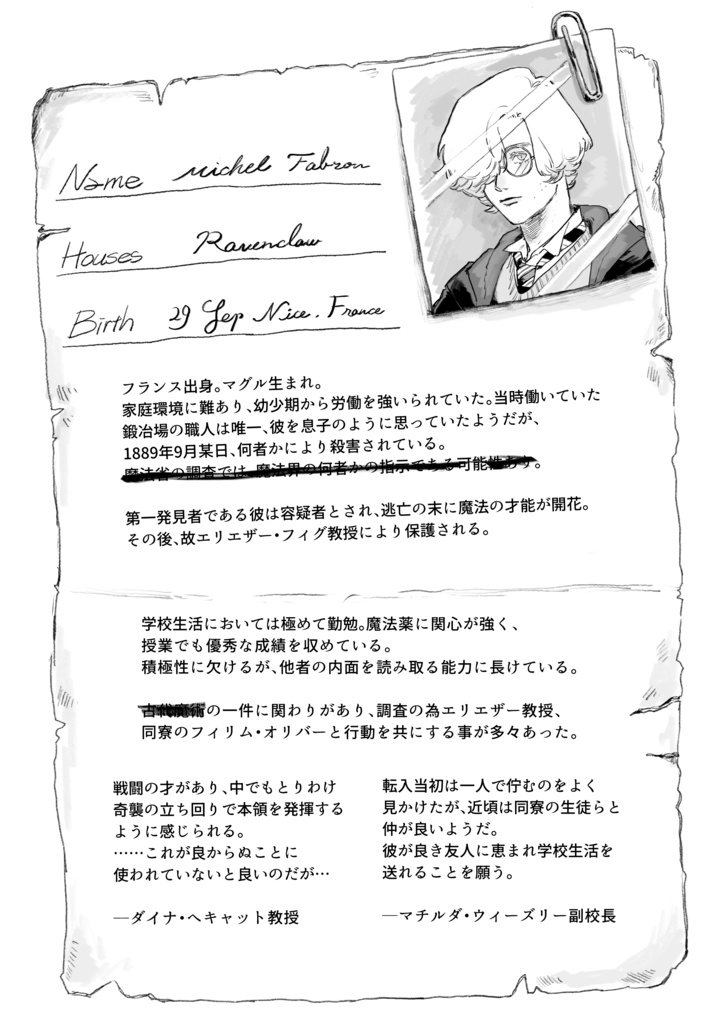 Name Michel Fabron
Houses Ravenclaw
Birth 29 Sep Nice, France
フランス出身。マグル生まれ。
家庭環境に難あり、幼少期から労働を強いられていた。当時働いていた
鍛冶場の職人は唯一、彼を息子のように思っていたようだが、
1889年9月某日、何者かにより殺害されている。
魔法省の調査では、魔法界の何者かの指示である可能性あり。
第一発見者である彼は容疑者とされ、逃亡の末に魔法の才能が開花。
その後、故エリエザー・フィグ教授により保護される。
学校生活においては極めて勤勉。魔法薬に関心が強く、
授業でも優秀な成績を収めている。
積極性に欠けるが、他者の内面を読み取る能力に長けている。
古代魔術の一件に関わりがあり、調査の為エリエザー教授、
同寮のフィリム・オリバーと行動を共にする事が多々あった。
戦闘の才があり、中でもとりわけ
奇襲の立ち回りで本領を発揮する
ように感じられる。
……これが良からぬことに
使われていないと良いのだが…
―ダイナ・ヘキャット教授
転入当初は一人で佇むのをよく
見かけたが、近頃は同寮の生徒らと
仲が良いようだ。
彼が良き友人に恵まれ学校生活を
送れることを願う。
―マチルダ・ウィーズリー副校長